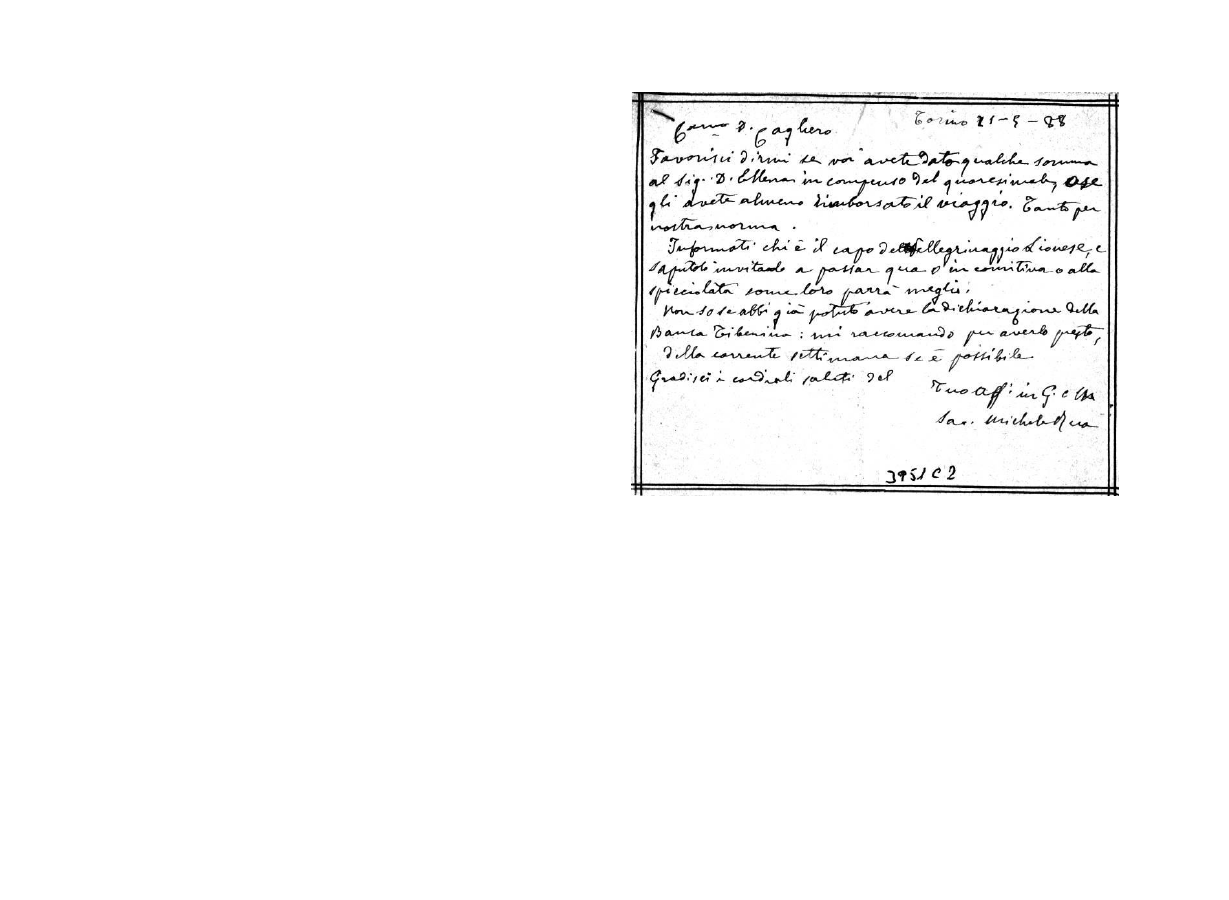 Torino 21-5-88
Carmo D. Cagliero
Favorisci dirmi se voi avete dato qualche somma
al Sig. D. Ellena in compenso del quaresimale, o se
gli avete almeno rimborsato il viaggio. Tanto per
nostra norma.
Informati chi è il capo del Pellegrinaggio Lionese, e
saputolo invitalo a passar qua o in comitiva o alla
spicciolata come loro parrà meglio.
Non so se abbi già potuto avere la dichiarazione della
Banca Tiberina: mi raccomando per averla presto,
della corrente settimana se è possibile.
Gradisci i cordiali saluti del
Tuo aff. in G. e M.
Sac. Michele Rua
3951 C 2